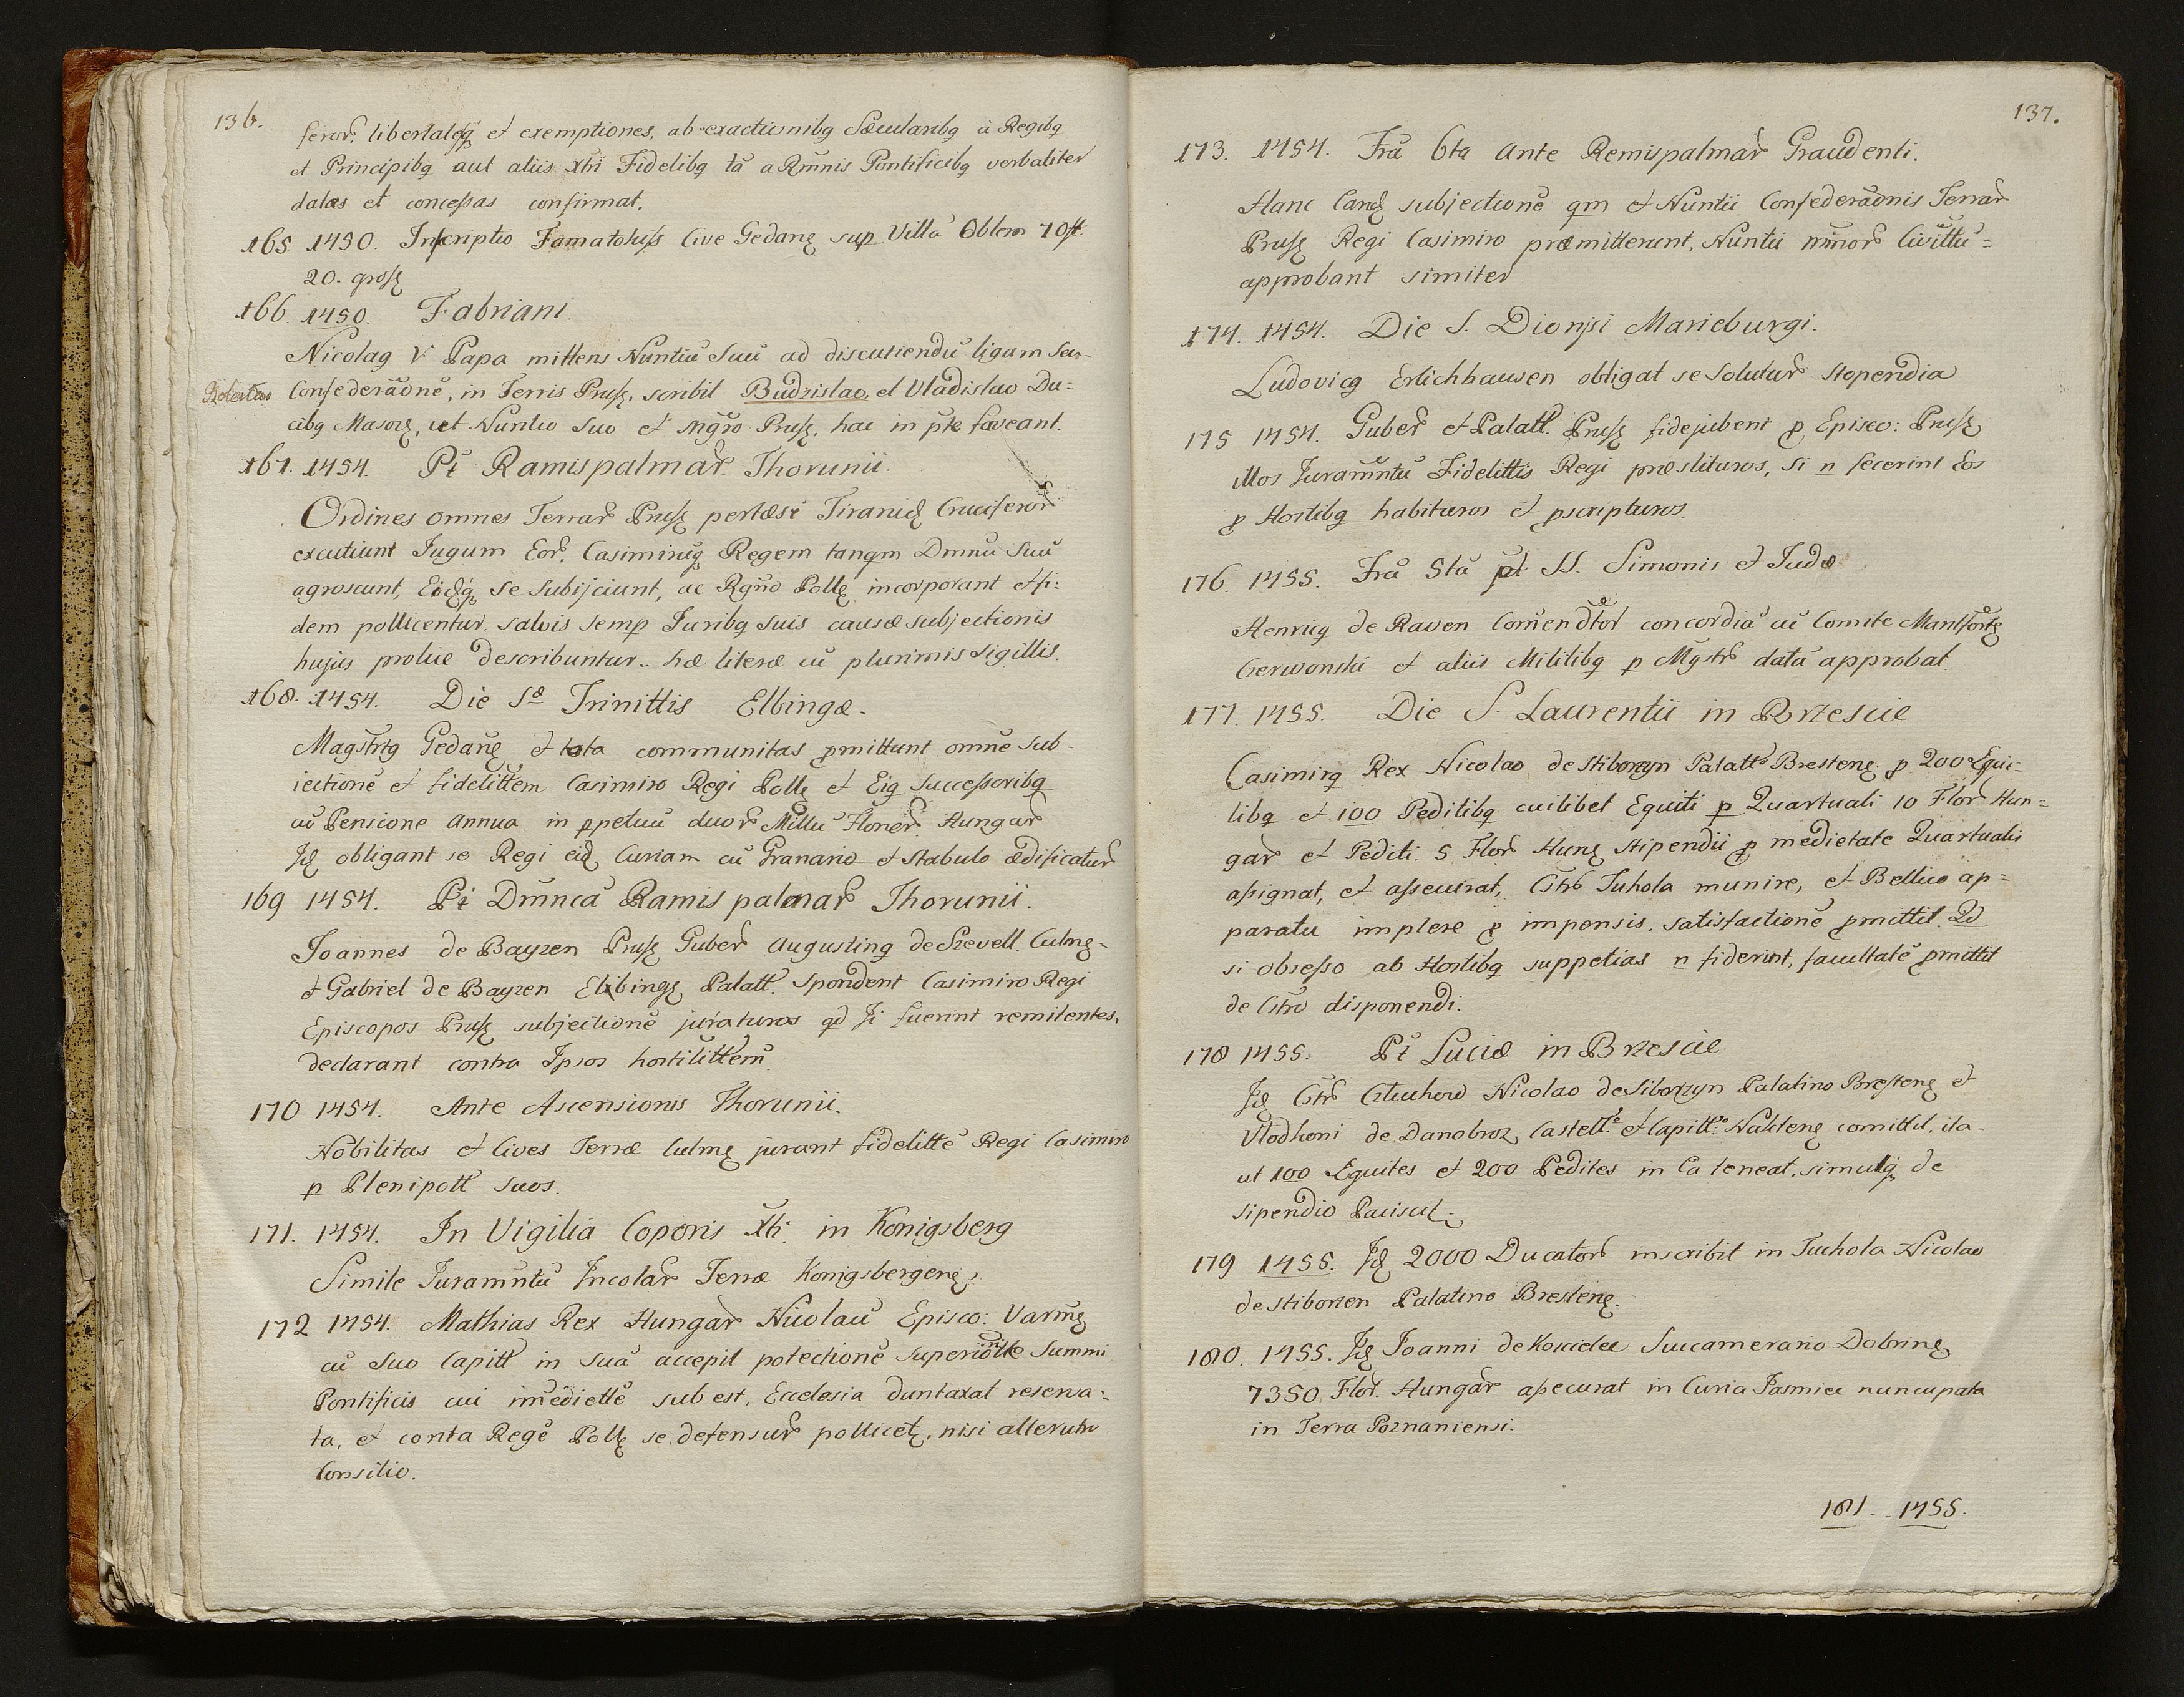 136.
feror. libertatesq et exemptiones, ab exactionibq Sæcularibq à Regibq
et Principibq aut aliis Xti Fidelibq tã a Rmnis Pontificibq verbaliter
datas et concessas confirmat.
165 1450. Inscriptio Famatohuss Cive Gedanę sup Villã Oblem 10 ff.
20. grosę
166. 1450. Fabriani.
Nicolaq V Papa mittens Nuntiũ Suũ ad discutiendũ ligam seu
Confederãonẽ, in Terris Prusę, scribit Budzislao, et Vladislao Du=
cibq Masovę, ut Nuntio suo et Mgrõ Prusę, hac in pte faveant.
167. 1454. Pt Ramispalmar Thorunii.
Ordines omnes Terrar Prusę pertæsi Tiranidę Cruciferor
excutiunt Jugum Eor. Casimirũq Regem tanqm Dmnũ Suũ
agnoscunt, Eidęq se subijciunt, ac Rgño Pollę incorporant et fi:
dem pollicentur, salvis semp Juribq suis causæ subjectionis
hujus prolixe describuntur.. hæ literæ cũ plurimis Sigillis.
168. 1454. Die Sæ Trinittis Elbingæ.
Magstrtq Gedanę et tota communitas pmittunt omnẽ sub-
iectionẽ et fidelittem Casimiro Regi Pollę et Eiq Successoribq
cũ Pensione annua in ppetuũ duor Millũ Florier. Hungar
Idę obligant se Regi eidę Curiam cũ Granario et Stabulo ædificatur
169 1454. Pt Dmncã Ramis palmar Thorunii.
Joannes de Bayzen Prusę Guber Augustinq de Szevell. Culmę
et Gabriel de Bayzen Elbingę Palatt. Spondent Casimiro Regi
Episcopos Prusę subjectionẽ juraturos qd Si fuerint remitentes,
declarant contra Ipsos hostilittem.
170 1454. Ante Ascensionis Thorunii.
Nobilitas et Cives Terræ Culmę jurant fidelittẽ Regi Casimiro
p Plenipott suos.
171. 1454. In Vigilia Coporis Xti. in Konigsberg
Simile Juramntũ Incolar Terræ Konigsbergenę,
172 1454. Mathias Rex Hungar Nicolaũ Episco: Varmę
cũ suo Capitt in suã accepit potectionẽ superioritte Summi
Pontificis cui imẽdiettẽ sub est, Ecclesia duntaxat reserva:
ta, et conta Regẽ Pollę se defensur pollicetę, nisi alterutro
Consilio.
137.
173. 1454. Frã 6ta ante Remispalmar Graudenti.
Hanc Candę subjectionẽ qm et Nuntii Confederãonis Terrar
Prusę Regi Casimiro præmitterunt, Nuntii minor Civittũ=
approbant similter
174. 1454. Die S. Dionjsi Marieburgi.
Ludovicq Erlichhausen obligat se solutur stopendia
175 1454. Guber et Palatt. Prusę fidejubent p Episco: Prusę
illos Juramntũ Fidelittis Regi præstituros, Si n fecerint Eos
p Hostibq habituros et pscripturos
176. 1455. Frã 5tã pt SS. Simonis et Judæ
Henricq de Raven Comendtor concordiã cũ Comite Mantfortę
Czerwonski et aliis Militibq p Mgstr datã approbat.
177. 1455. Die S. Laurentii in Brzescie
Casimirq Rex Nicolao de Stiborzyn Palatto Brestenę p 200 Equi-
tibq et 100 Peditibq cuilibet Equiti p Quartuali 10 Flor Hun=
gar et Pediti 5 Flor Hunę Stipendii p medietate Quartualis
assignat, et assecurat, Cstro Tuhola munire, et Bellico ap=
paratu implere p impensis. satisfactionẽ pmittit. Qd
si obsesso ab Hostibq suppetias n fiderint, facultatẽ pmittit
de Cstro disponendi.
178 1455. Pt Luciæ in Brzescie
Idę Cstr Ctuchow Nicolao de Siborzyn Palatino Brestenę et
Vlodkoni de Danobroz, Castelto et Capitto Naklenę comittit, ita-
ut 100 Equites et 200 Pedites in Ca teneat, simulq de
sipendio Paciscit.
179 1455. Idę 2000 Ducator inscribit in Tuchola Nicolao
de Stiborzen Palatino Brestenę.
180. 1455. Idę Joanni de Koscielec Succamerario Dobrinę
7350 Flor. Hungar assecurat in Curia Jasmiec nuncupata
in Terra Poznaniensi.
181. 1455.